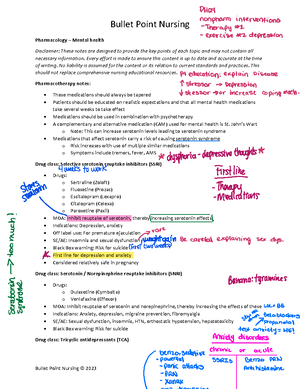 Bullet Point Nursing
Plot
nonpharm interventions
- Therapy #1
- exercise #2 depression
Pharmacology – Mental health
Disclaimer: These notes are designed to provide the key points of each topic and may not contain all
necessary information. Every effort is made to ensure the content is up to date and accurate at the time
of writing. No liability is assumed for the content or its relation to current standards and practices. This
should not replace comprehensive nursing educational resources.
Pt education: explain disease
↓ stressor → depression
↓ stressor → for increase coping mech.
Pharmacotherapy notes:
• These medications should always be tapered
• Patients should be educated on realistic expectations and that all mental health medications
take several weeks to take effect
• Medications should be used in combination with psychotherapy
• A complementary and alternative medication (CAM) used for mental health is St. John's Wart
o Note: This can increase serotonin levels leading to serotonin syndrome
• Medications that affect serotonin carry a risk of causing serotonin syndrome
o Risk increases with use of multiple similar medications
o Symptoms include tremors, fever, AMS
* dysphoria - depressive thoughts *
Drug class: Selective serotonin reuptake inhibitors (SSRI)
4 weeks to work
First line
- Therapy
- Medications
• Drugs:
o Sertraline (Zoloft)
o Fluoxetine (Prozac)
o Escitalopram (Lexapro)
o Citalopram (Celexa)
o Paroxetine (Paxil)
• MOA: Inhibit reuptake of serotonin, thereby increasing serotonin effects
• Indications: Depression, anxiety
• Off label use: for premature ejaculation
• SE/AE: Insomnia and sexual dysfunction, weight gain
be careful explaining sex dys.
• Black Box warning: Risk for suicide
first two weeks
• First line for depression and anxiety
• Considered relatively safe in pregnancy
Serotonin → too much!
Syndrome
Drug class: Serotonin / Norepinephrine reuptake inhibitors (SNRI)
• Drugs:
o Duloxetine (Cymbalta)
o Venlafaxine (Effexor)
• MOA: Inhibit reuptake of serotonin and norepinephrine, thereby increasing the effects of these
• Indications: Anxiety, depression, migraine prevention, fibromyalgia
• SE/AE: Sexual dysfunction, insomnia, HTN, orthostatic hypotension, hepatotoxicity
• Black Box warning: Risk for suicide
Drug class: Tricyclic antidepressants (TCA)
Anxiety disorders
chronic or acute
SSRIs
Benzo PRN
Antihistamine
- PRN
- Xanax
Bullet Point Nursing © 2023